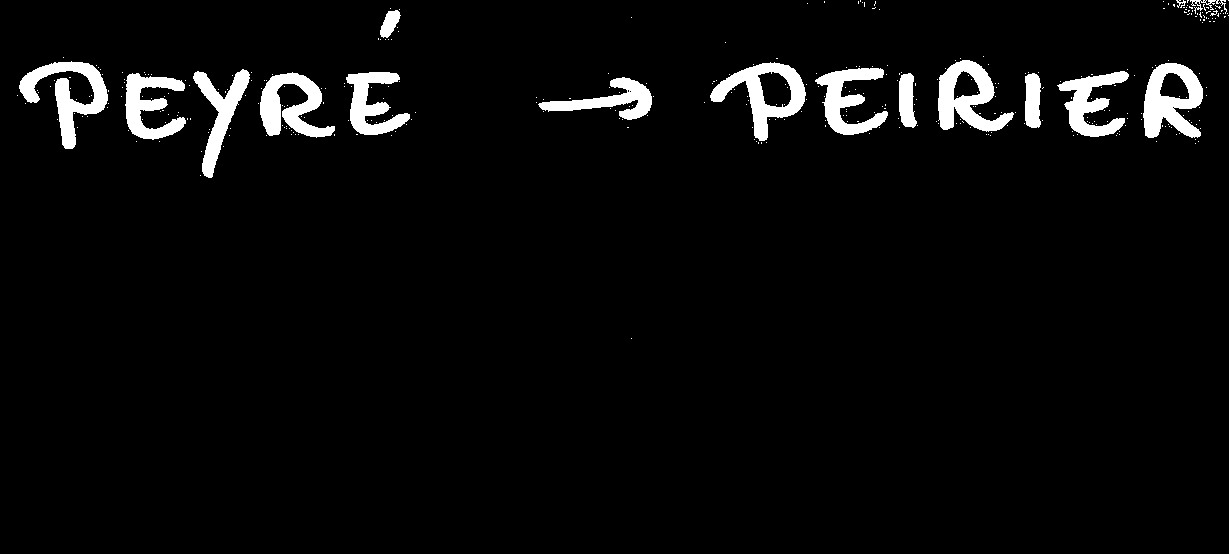 PEYRÉ → PEIRIER